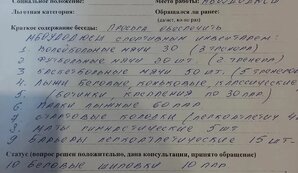 Социальное положение: Место работы:
Льготная категория: Обращался ли ранее:
(да/нет, кол-во раз)
Краткое содержание беседы: Просьба обеспечить
спортивным инвентарем:
1. Волейбольные мячи 30 (3 тренера)
2. Футбольные мячи 20 шт. (2 тренера)
3. Баскетбольные мячи 50 шт. (5 тренеров
4. Лыжи беговые коньковые, классические
5. Ботинки крепления по 30 пар
6. Палки лыжные 60 пар
7. Стартовые колодки (легкоатлет
8. Маты гимнастические 5 шт
9 Барьеры легкоатлетические 15 шт.
Статус (вопрос решен положительно, дана консультация, принято обращение)
10 Беговые шиповки 10 пар